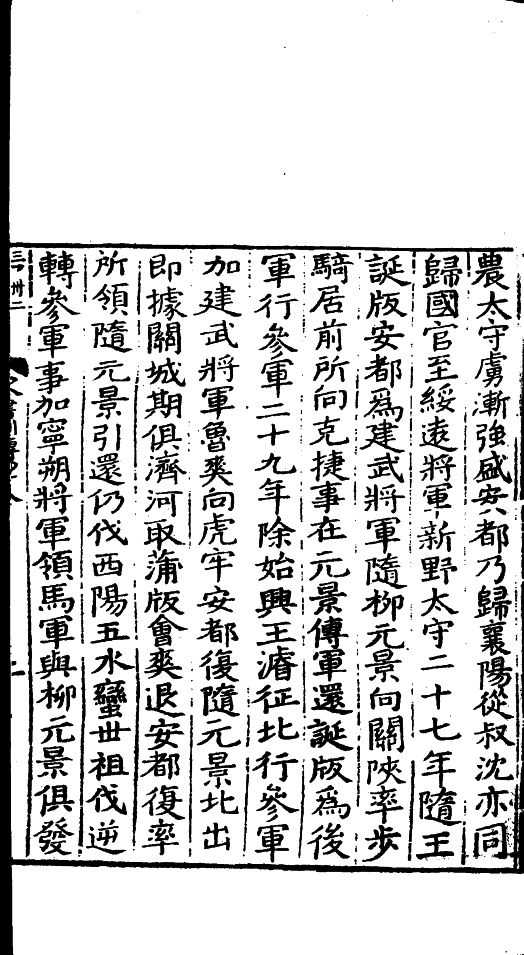 農太守虜漸強盛安都乃歸襄陽從叔沈亦同
歸國官至綏遠將軍新野太守二十七年隨王
誕版安都爲建武將軍隨柳元景向關陝率步
騎居前所向克捷事在元景傳軍還誕版爲後
軍行參軍二十九年除始興王濬征北行參軍
加建武將軍魯爽向虎牢安都復隨元景北出
即據關城期俱濟河取蒲版會爽退安都復率
所領隨元景引還仍伐西陽五水蠻世祖伐逆
轉參軍事加寧朔將軍領馬軍與柳元景俱發